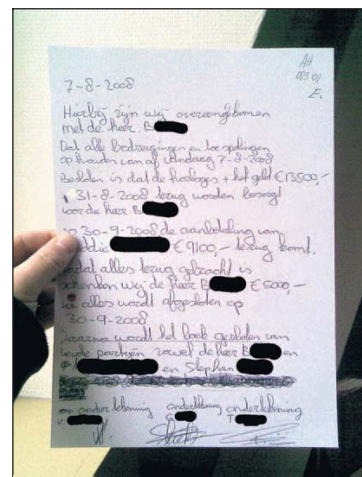 AH
003.01
E.
7-8-2008
Hierbij zijn wij overeengekomen
met de heer. B
Dat alle bedreigingen en toespelingen
ophouden vanaf vandaag 7-8-2008
Besloten is dat de horloges + het geld € 13500,-
31-8-2008 terug worden bezorgd
voor de heer B
30-9-2008 de aanbetaling van
€ 9100,- terug komt.
alles terug gebracht is
schenken wij de heer B € 5000,-
alles wordt afgesloten op
30-9-2008.
Daarna wordt het boek gesloten van
beyde partijen zowel de heer B en
en Stephan
ondertekening ondertekening ondertekening